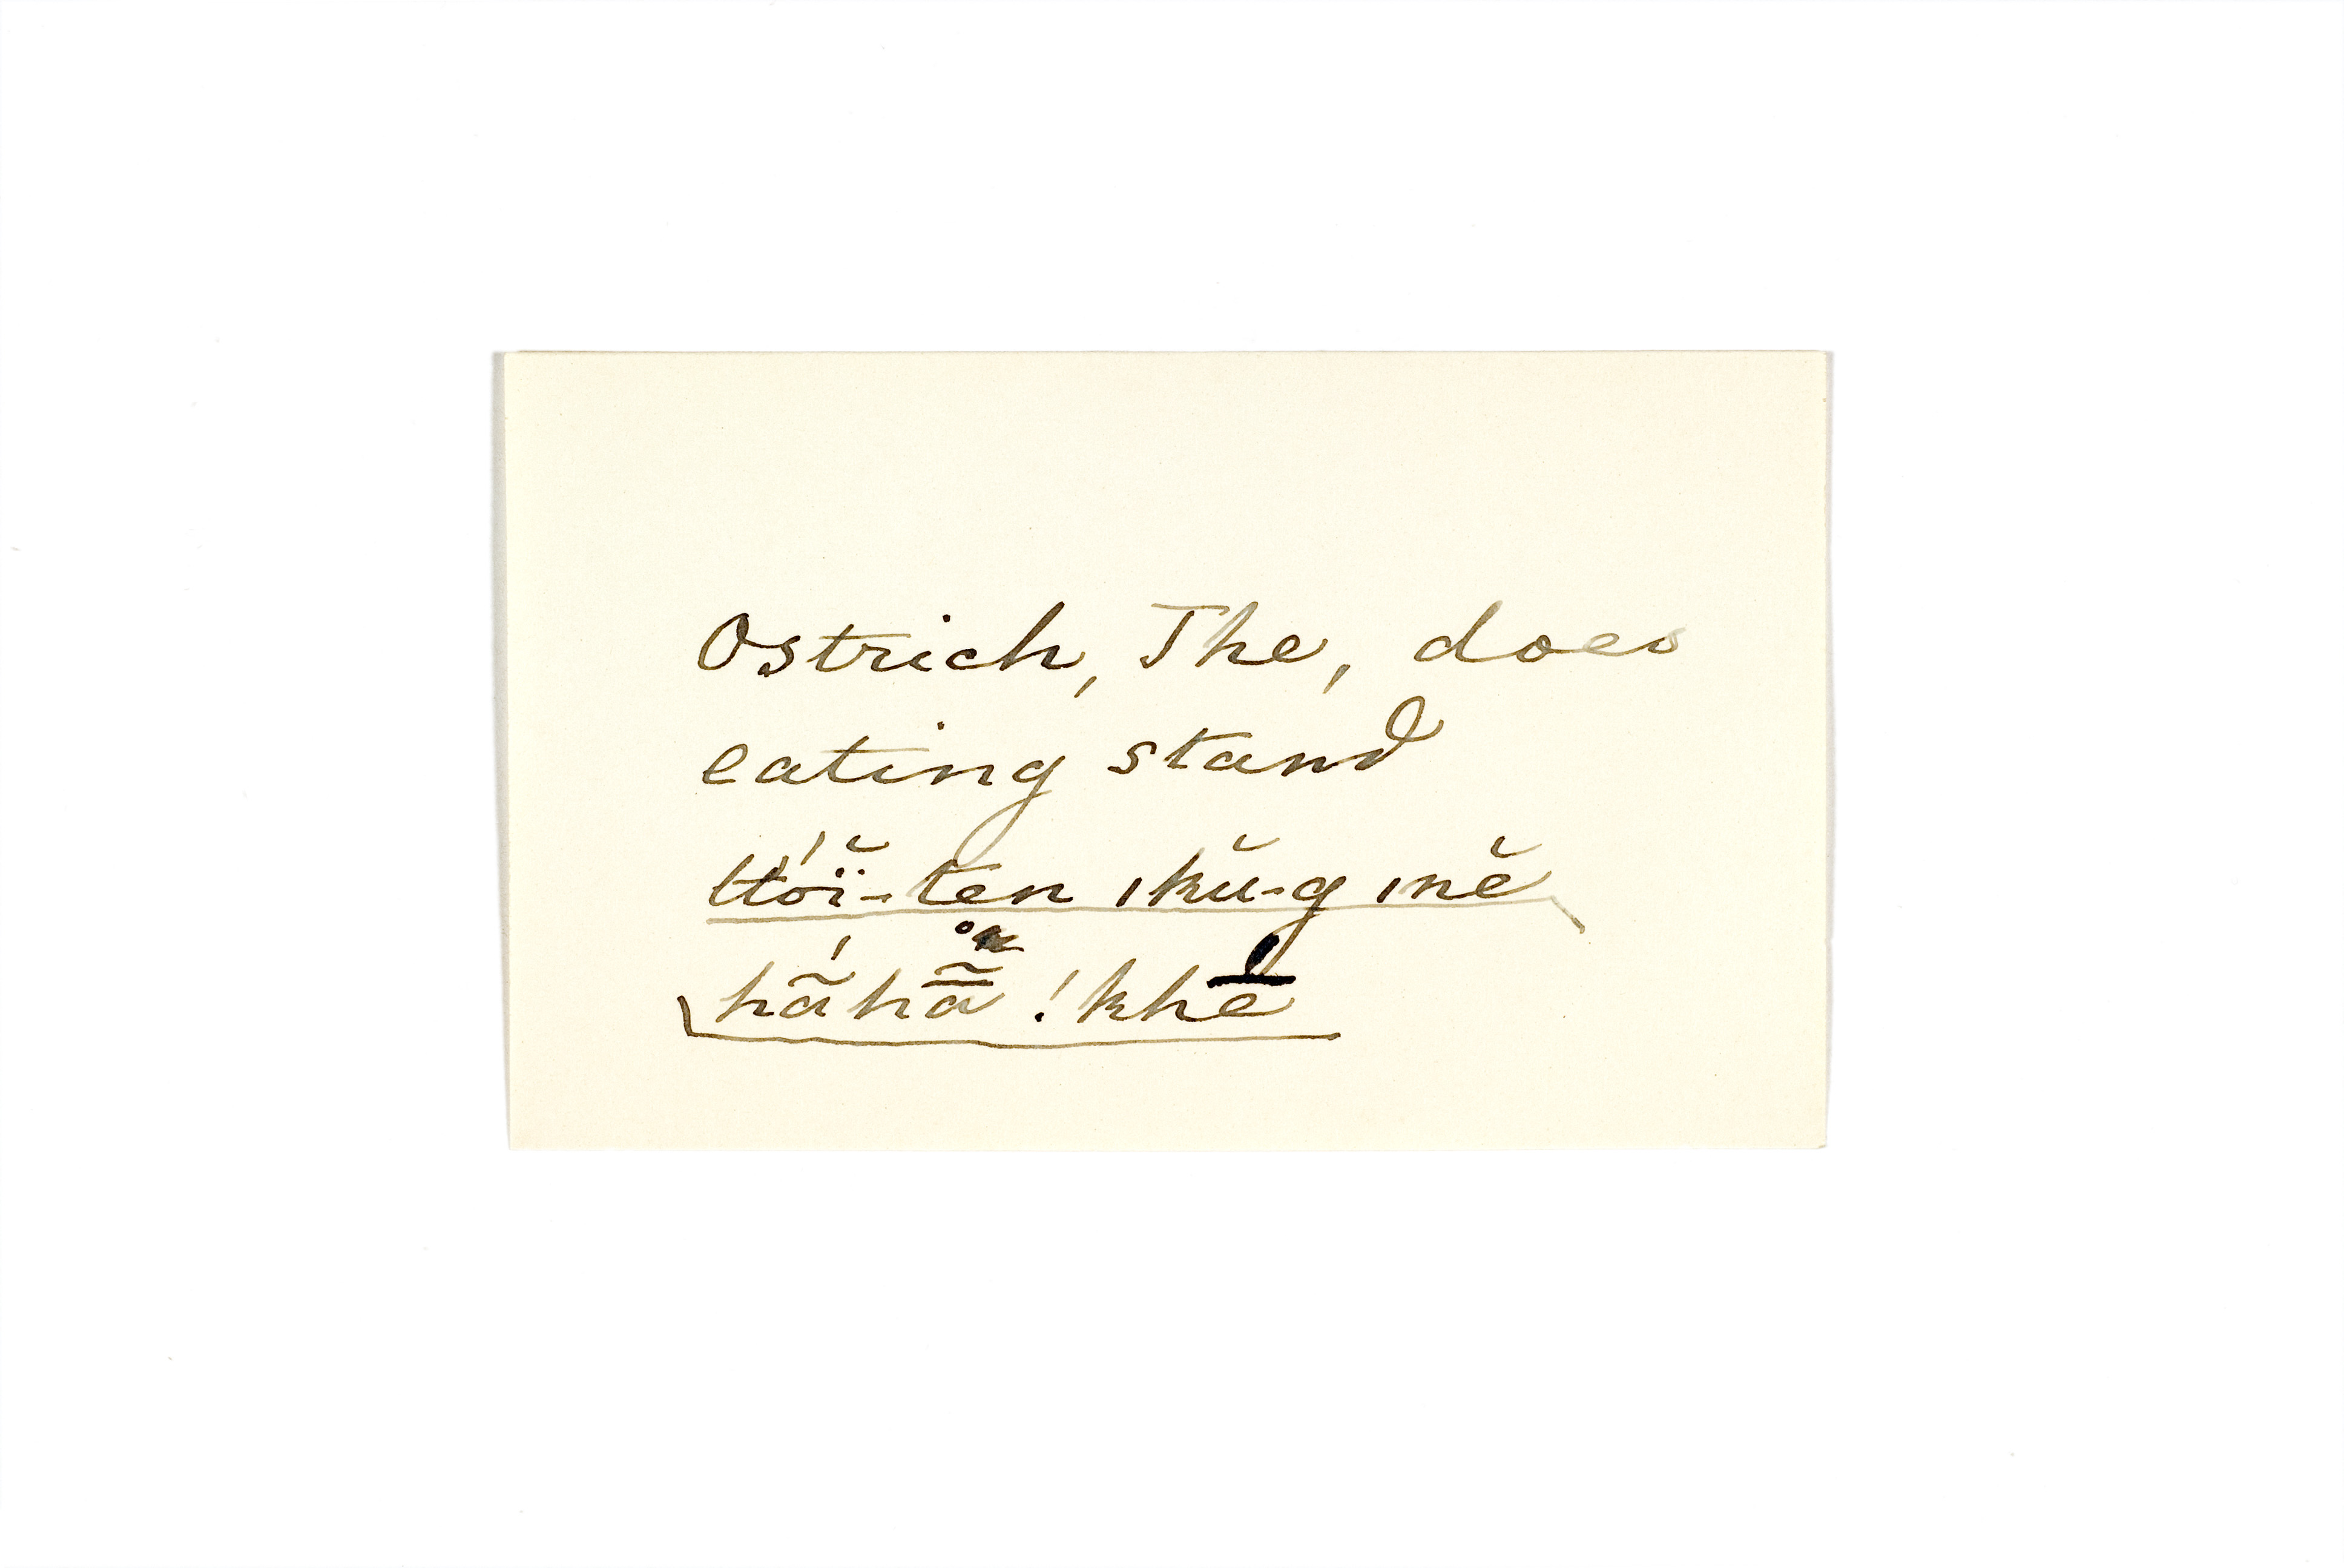 Ostrich, The, does
eating stand
ttóï̆-ten ǀkŭ-g ǀnĕ
hã́hã̳̊ !khē